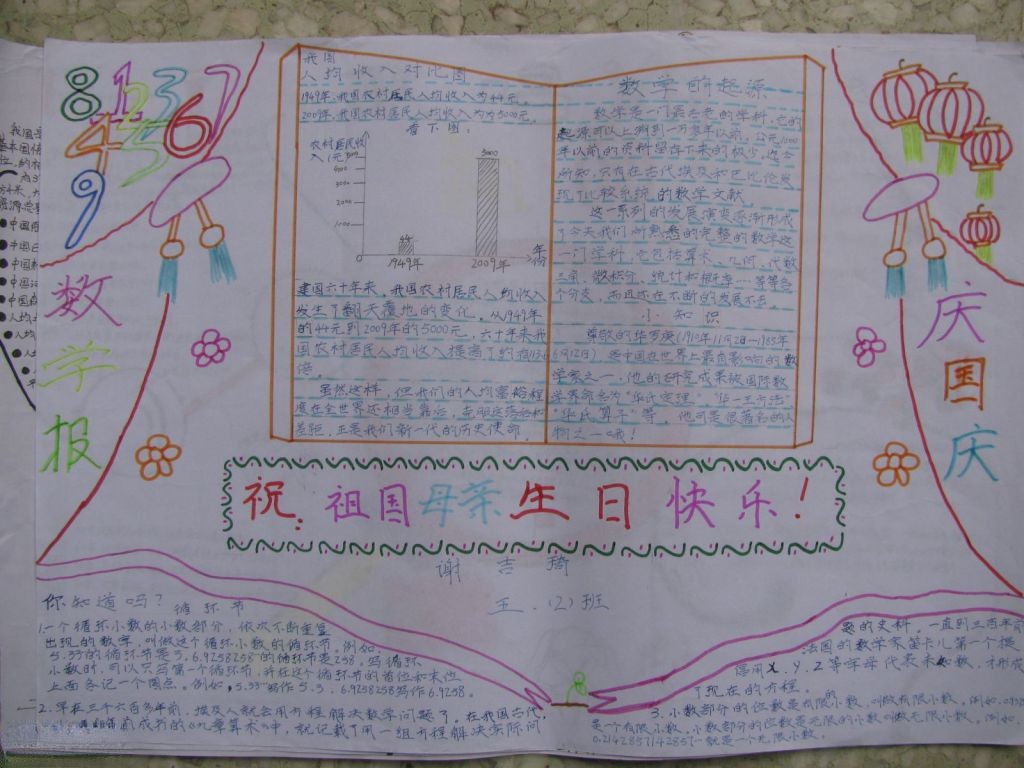 8 1 3 7
4 5 6
9
数
学
报
我国
人均收入对比图
1949年,我国农村居民人均收入为44元。
2009年,我国农村居民人均收入为5000元。
看下图:
农村居民收
入(元)
5000
4000
3000
2000
1000
0
44
5000
1949年
2009年
年份
建国六十年来,我国农村居民人均收入
发生了翻天覆地的变化。从1949年
的44元到2009年的5000元,六十年来我
国农村居民人均收入提高了约113.6
倍。
虽然这样,但我们的人均富裕程
度在全世界还相当靠后,去朋这落后和
差距,正是我们新一代的历史使命。
数学的起源
数学是一门最古老的学科,它的
起源可以上溯到一万多年以前。公元1000
年以前的资料留存下来的极少。迄今
所知,只有在古代埃及和巴比伦发
现了比较系统的数学文献。
这一系列的发展演变逐渐形成
了今天我们所熟悉的完整的数学这
一门学科,它包括算术、几何、代数
三角、微积分、统计和概率……等等各
个分支,而且还在不断的发展下去。
小知识
尊敬的华罗庚(1910年11月12日—1985年
6月12日)是中国在世界上最有影响的数
学家之一,他的研究成果被国际数
学界命名为“华氏定理”、“华—王方法”
“华氏算子”等。他可是很著名的人
物之一哦!
庆
国
庆
祝:祖国母亲生日快乐!
谢吉琦
五.(2)班
你知道吗?
循环节
1.一个循环小数的小数部分,依次不断重复
出现的数字,叫做这个循环小数的循环节。例如:
5.33的循环节是3,6.9258258的循环节是258。写循环
小数时,可以只写第一个循环节,并在这个循环节的首位和末位
上面各记一个圆点。例如,5.33写作5.3,6.9258258写作6.9258。
2.早在三千六百多年前,埃及人就会用方程解决数学问题了。在我国古代,
前成书的《九章算术》中,就记载了用一组方程解决实际问
题的史料。一直到三百年前
法国的数学家笛卡儿第一个提
倡用x、y、z等字母代表未知数,才形成
了现在的方程。
3.小数部分的位数是有限的小数,叫做有限小数。例如:
是个有限小数。小数部分的位数是无限的小数叫做无限小数。例如,
0.2142857142857…就是一个无限小数。